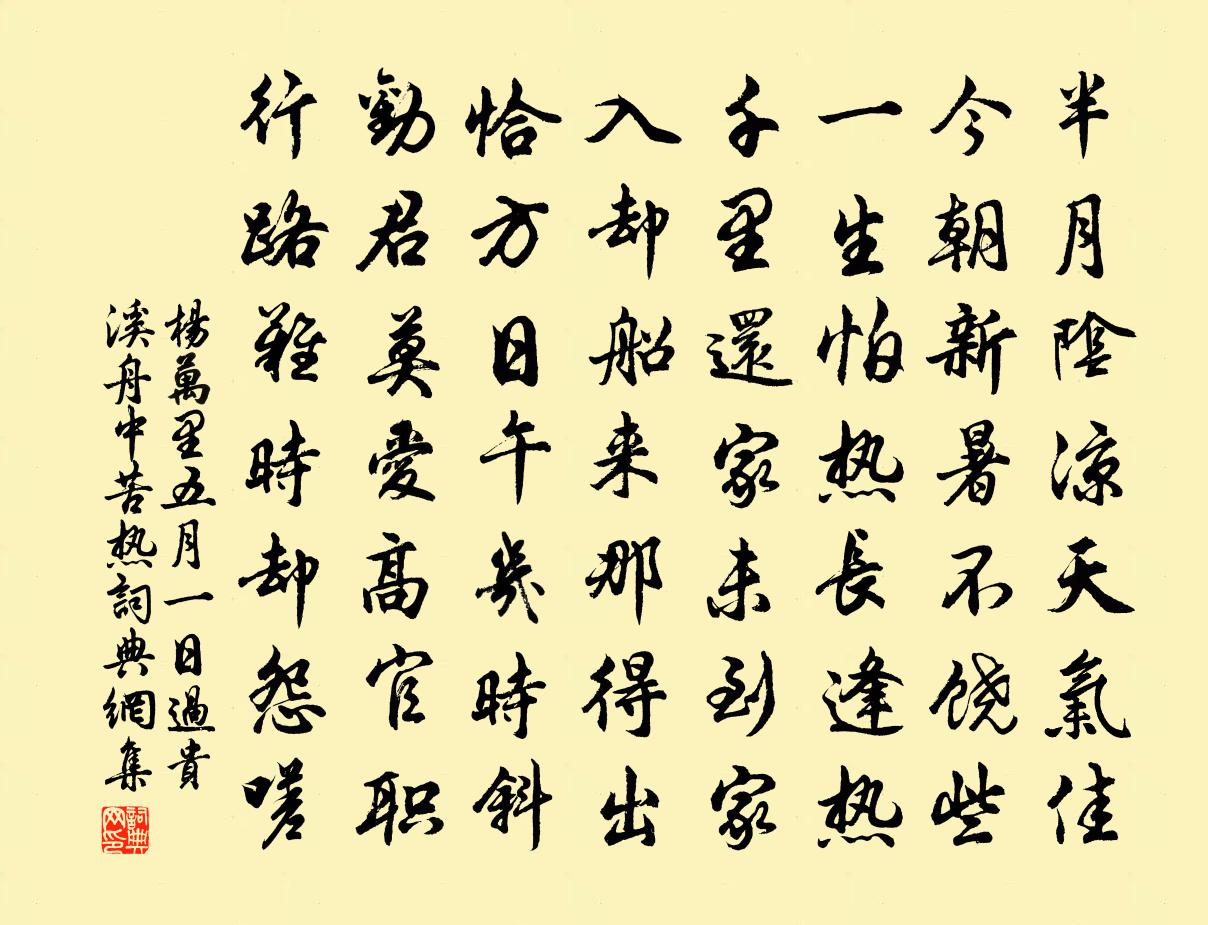 半月陰凉天氣佳
今朝新暑不饒些
一生怕热長逢热
千里還家未到家
入却船来那得出
恰方日午幾時斜
勸君莫愛高官职
行路難時却怨嗟
楊萬里五月一日過貴
溪舟中苦热詞典網集
詞典网印